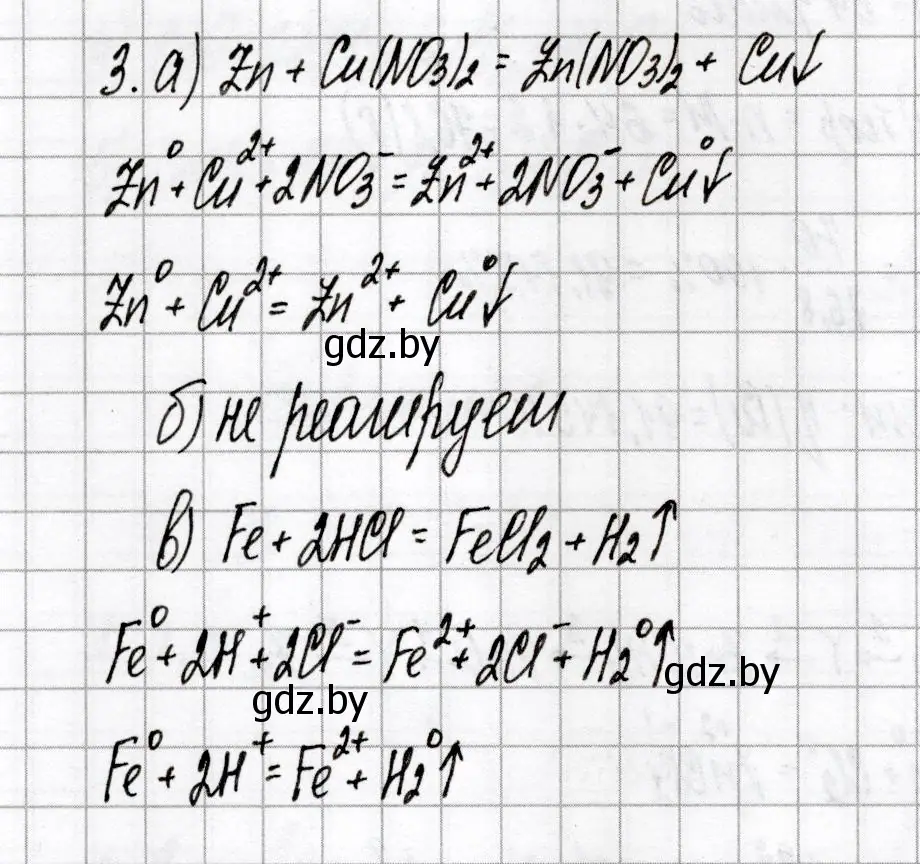 3. а) Zn + Cu(NO3)2 = Zn(NO3)2 + Cu↓
Zn⁰ + Cu²⁺ + 2NO3⁻ = Zn²⁺ + 2NO3⁻ + Cu⁰↓
Zn⁰ + Cu²⁺ = Zn²⁺ + Cu⁰↓
gdz.by
б) не реагирует
в) Fe + 2HCl = FeCl2 + H2↑
Fe⁰ + 2H⁺ + 2Cl⁻ = Fe²⁺ + 2Cl⁻ + H2⁰↑
gdz.by
gdz.by
Fe⁰ + 2H⁺ = Fe²⁺ + H2⁰↑